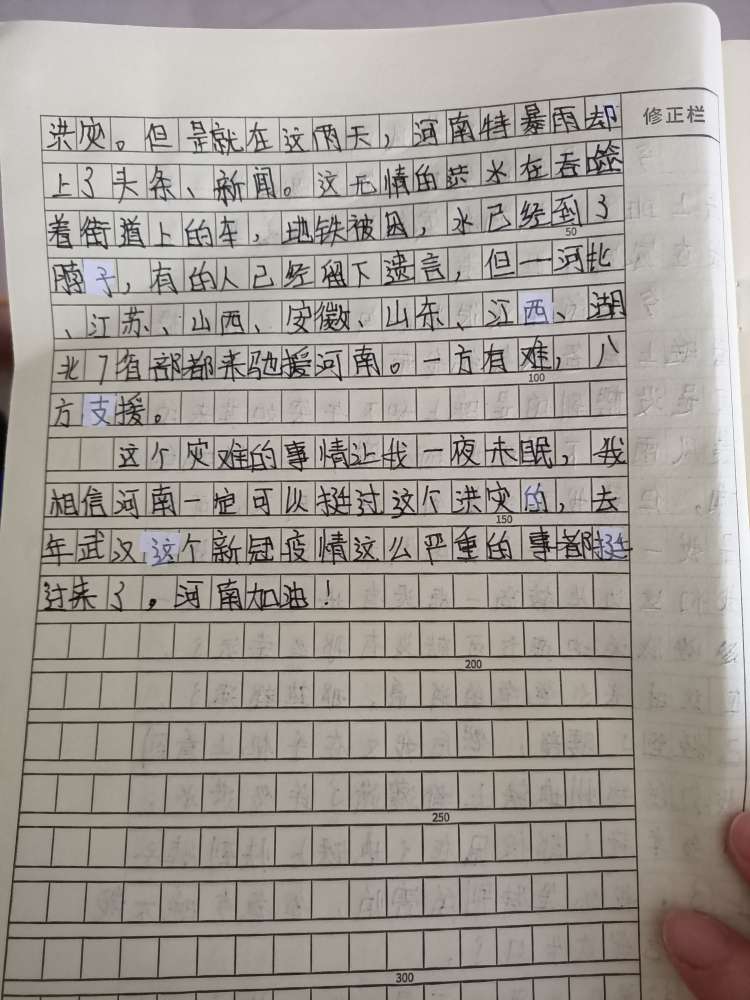 洪灾。但是就在这两天，河南特暴雨却
修正栏
上了头条、新闻。这无情的洪水在吞噬
着街道上的车，地铁被困，水已经到了
50
脖子，有的人已经留下遗言，但一河北
、江苏、山西、安徽、山东、江西、湖
北7省部都来驰援河南。一方有难，八
100
方支援。
这个灾难的事情让我一夜未眠，我
相信河南一定可以挺过这个洪灾的，去
150
年武汉这个新冠疫情这么严重的事都挺
过来了，河南加油！
200
250
300